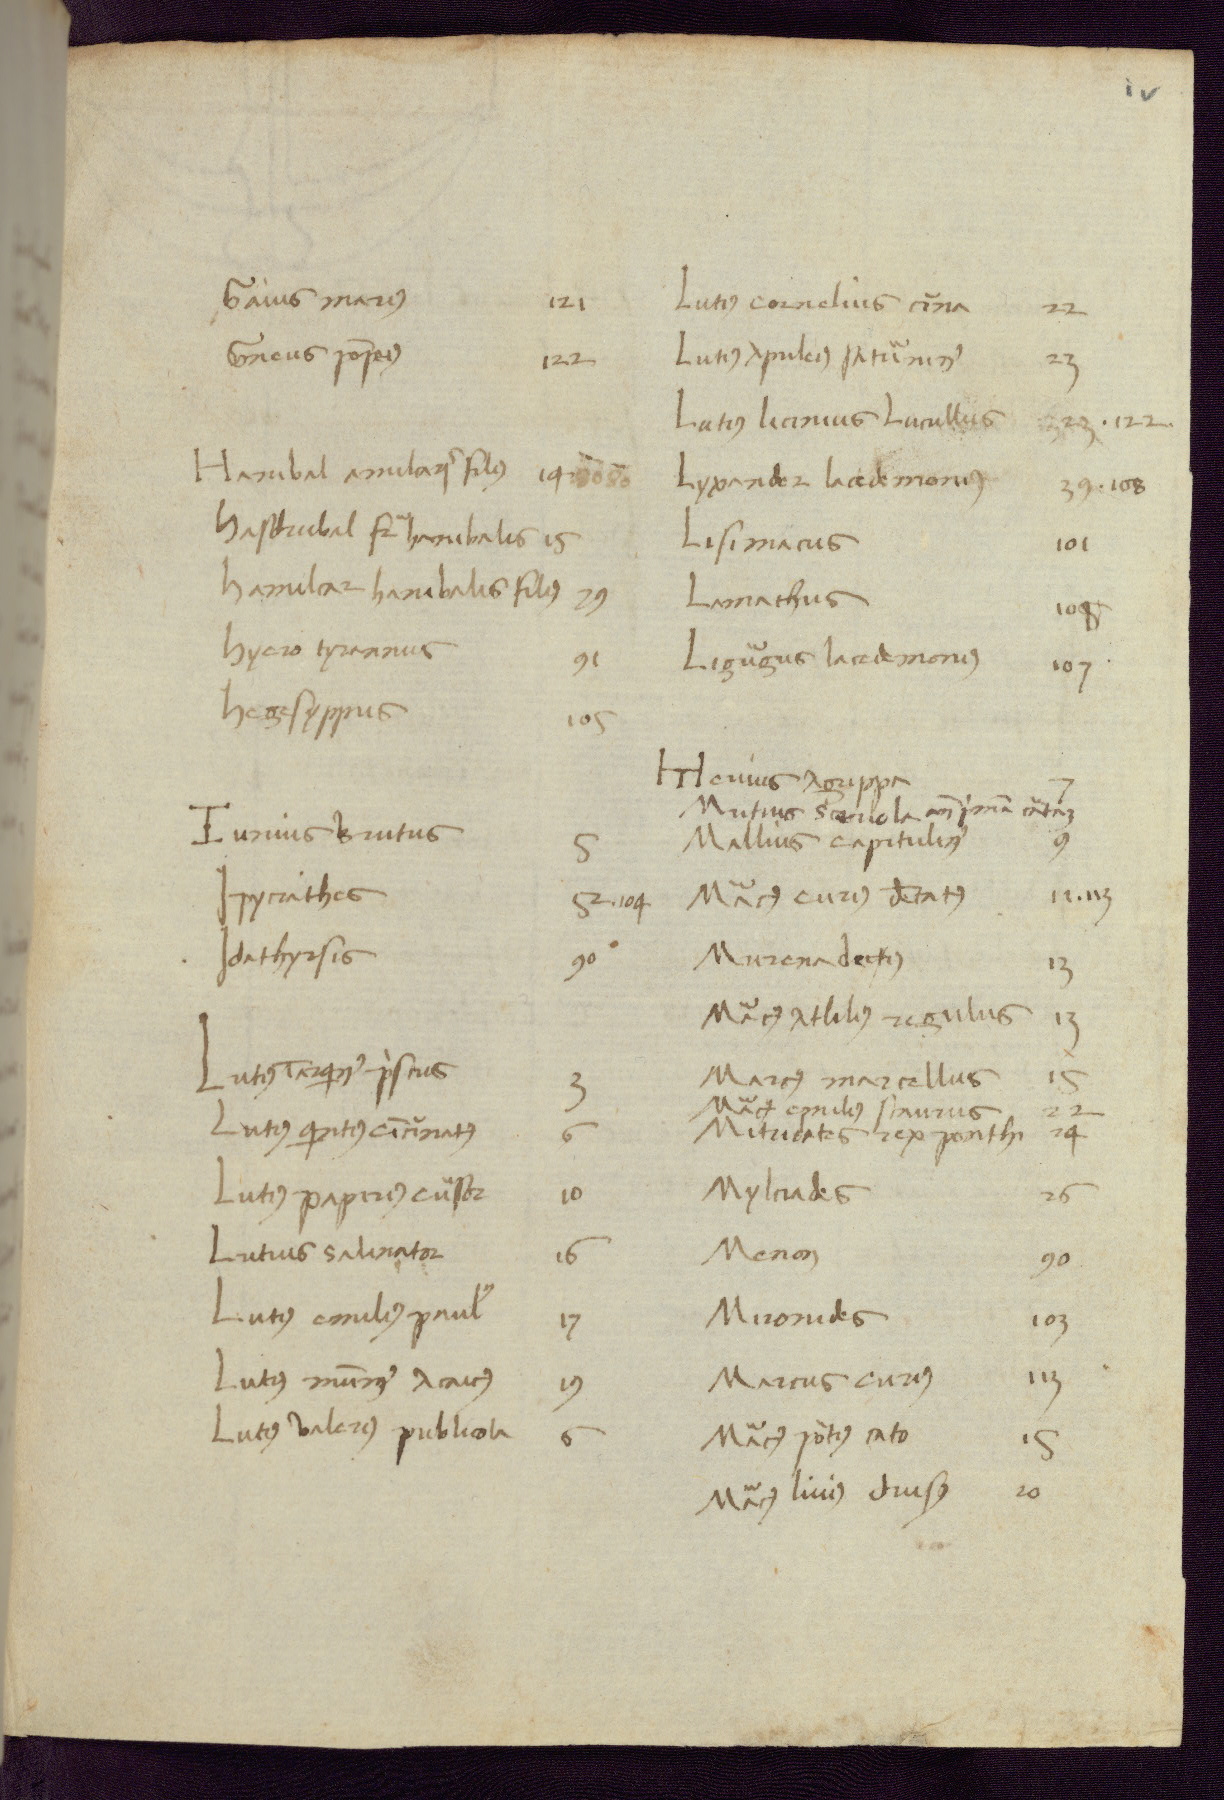 iv
Gaius marꝰ 121
Gneus pōpeꝰ 122
Hanibal amilcarꝭ filiꝰ 14
hasdrubal fr̄ hanibalis 15
hamilcar hanibalis filiꝰ 79
hyero tyrannus 91
hegesyppus 105
Iunius Brutus 5
Ipycrathes 52.104
Idathyrsis 90
Lutiꝰ Tarqinꝰ pͥscus 3
Lutiꝰ qͥntiꝰ cīcīnatꝰ 6
Lutiꝰ papiriꝰ cursor 10
Lutius salinator 16
Lutiꝰ emiliꝰ paulꝰ 17
Lutiꝰ mūmꝰ Acaicꝰ 19
Lutiꝰ valeriꝰ publicola 6
Lutiꝰ cornelius cīna 22
Lutiꝰ Apuleiꝰ saturninꝰ 23
Lutiꝰ licinius Lucullus 123.122.
Lyxander lacedemoniꝰ 39.108
Lisimacus 101
Lamathus
Ligurgus lacedemoniꝰ 107
Menius Agrippa 7
Mutius Scevola
Mallius capitulinꝰ 9
Marcꝰ curiꝰ dētatꝰ 11.113
Murena deciꝰ 13
Marcꝰ Atliliꝰ regulus 13
Marcꝰ marcellus 15
Marcꝰ emiliꝰ scaurus 22
Mitridates rex ponthi 24
Myltiades 26
Menon 90
Mironides 103
Marcus curiꝰ 113
Marcꝰ portiꝰ cato 15
Marcꝰ liviꝰ drusꝰ 20